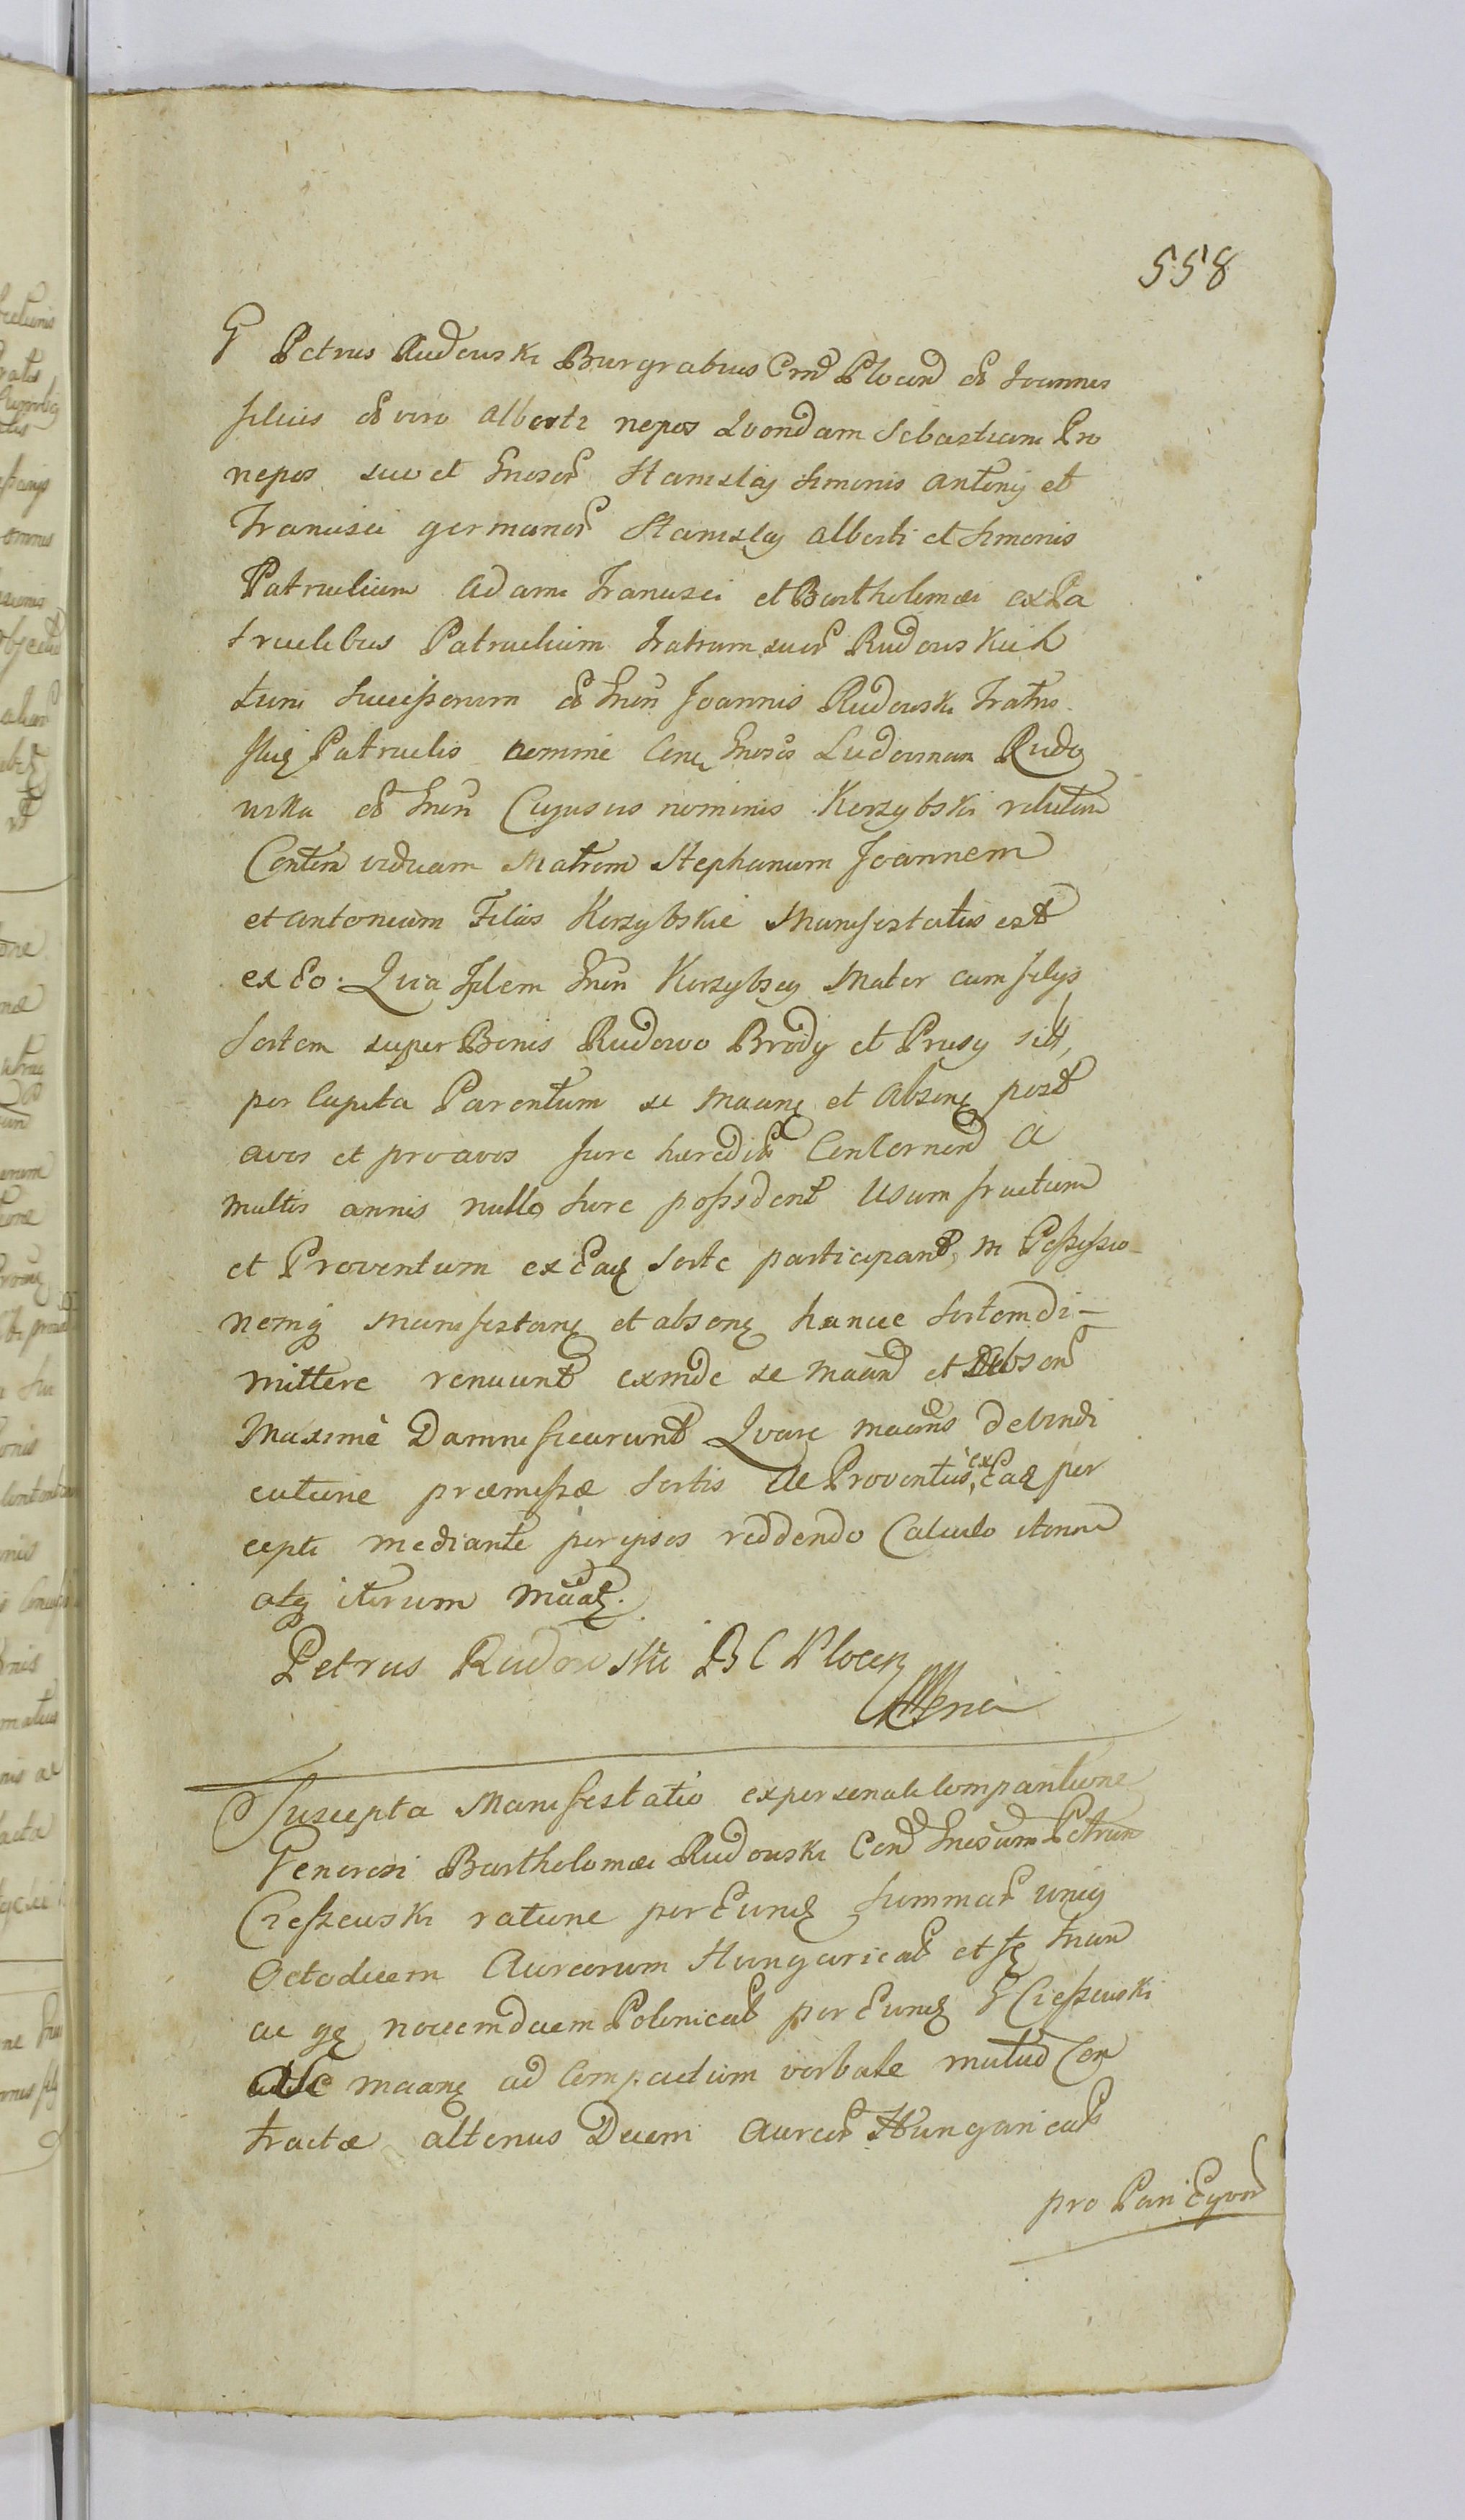 558
G Petrus Rudowski Burgrabius Crnd Plocen olim Joannis
filius olim vero Alberti nepos Quondam Sebastiani Pro
nepos suo et Gnosor Stanislaj Simonis Antonij et
Francisci germanor Stanislaj Alberti et Simonis
Patruelium Adami Francisci et Bartholomæi ex Pa
truelibus Patruelium Fratrum suor Rudowskich
tum Successorum olim Gnsi Joannis Rudowski Fratris
Patruelis nomine Cone Gnosos Ludovinam Rudo
wska olim Gnsi Cujusvis nominis Korzybski relictam
Viduam Matrem Stephanum Joannem
et Antonium Filios Korzybskie Manifestatus est
ex Eo. Quia Iidem Gnsi Korzybscy Mater cum filijs
Sortem super Bonis Rudowo Brody et Prusy sitt,
per Capita Parentum se maane et Absene post
avos et proavos Jure heredit Concernend A
multis annis nullo Jure possident Usum fructum
et Proventum ex Eaq Sorte participant, in Possessio-
nemq Manifestane et absene hance Sortem di-
mittere renuunt exinde se maand et Absen
Maxime Damnificarunt Quare maans de vindi
catione præmissæ Sortis de Proventus, ex Eaq per
cepti mediante per ipsos reddendo Calculo iterum
atq iterum maatq.
Petrus Rudowski B C Plocen
Suscepta Manifestatio ex personali comparitione
Generosi Bartholomæi Rudowski Con Gnosum Petrum
Cieszewski ratione per Eund Summar unius
Octodecem Aureorum Hungaricat et
ac novemdecem Polonical per Eund G Cieszewski
maane ad Compactum verbale mutuo Con
tractæ alterius Decem Aureor Hungaricals
pro Pari